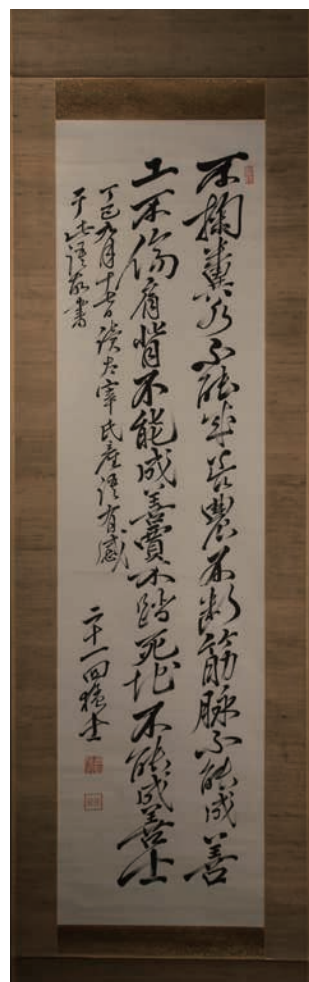 不掬糞水不能成善農不断筋脉不能成善
工不傷肩背不能成善賈不踏死地不能成善士
丁巳九月十七日讀太宰氏産語有感
于此語書
二十一回猛士